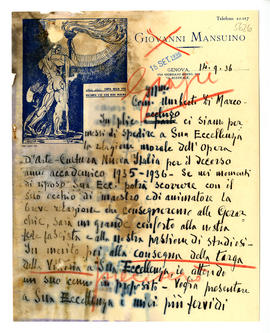 Telefono 22.117
5626
GIOVANNI MANSUINO
GENOVA,
15 SET. 1936
14-9-36
Comm. Umberto Di Marco
In plico ci siamo per-
messi di spedire a Sua Eccellenza
la relazione morale dell'Opera
D'Arte-Cultura Nuova Italia per il decorso
anno accademico 1935-1936. Se nei momenti
di riposo Sua Ecc. potrà scorrere con il
suo occhio di maestro e di animatore la
breve relazione che consegneremo alle Gerar-
chie, sarà un grande conforto alla nostra
fede fascista e alla nostra passione di studiosi.
In merito poi alla consegna della targa
della Vittoria a Sua Eccellenza, io attendo
un suo cenno in proposito. Voglia presentare
a Sua Eccellenza i miei più fervidi